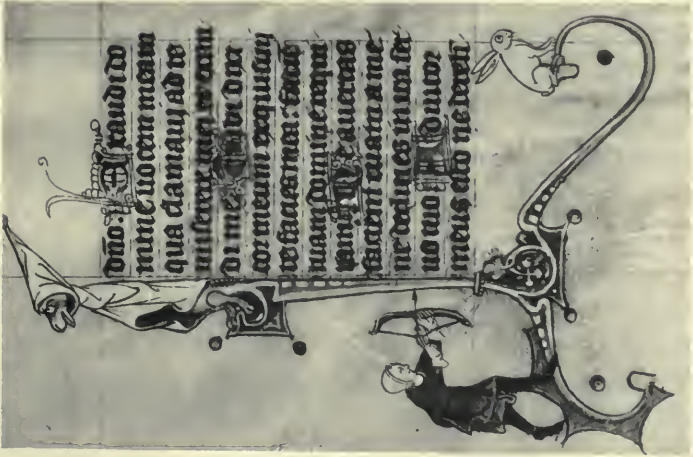 dño. Exaudi do
mine uocem meam
qua clamaui ad te
miserere mei et exau
di me. Tibi dixit
cor meum exquisiuit
te facies mea: faciē
tuam domine requi
ram. Ne auertas
faciem tuam a me
ne declines in ira a ser
uo tuo Adiutor
meus esto ne dereli